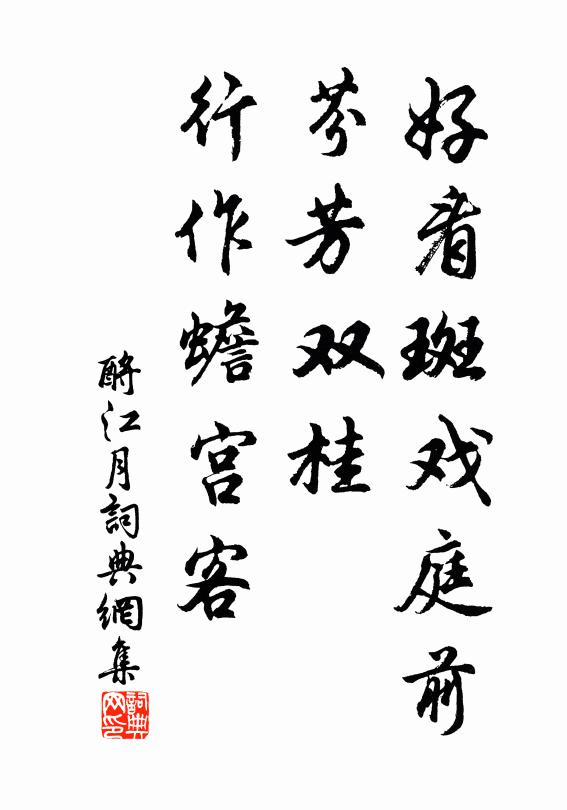 好看斑戏庭前
芬芳双桂
行作蟾宫客
酹江月詞典網集
詞典网印